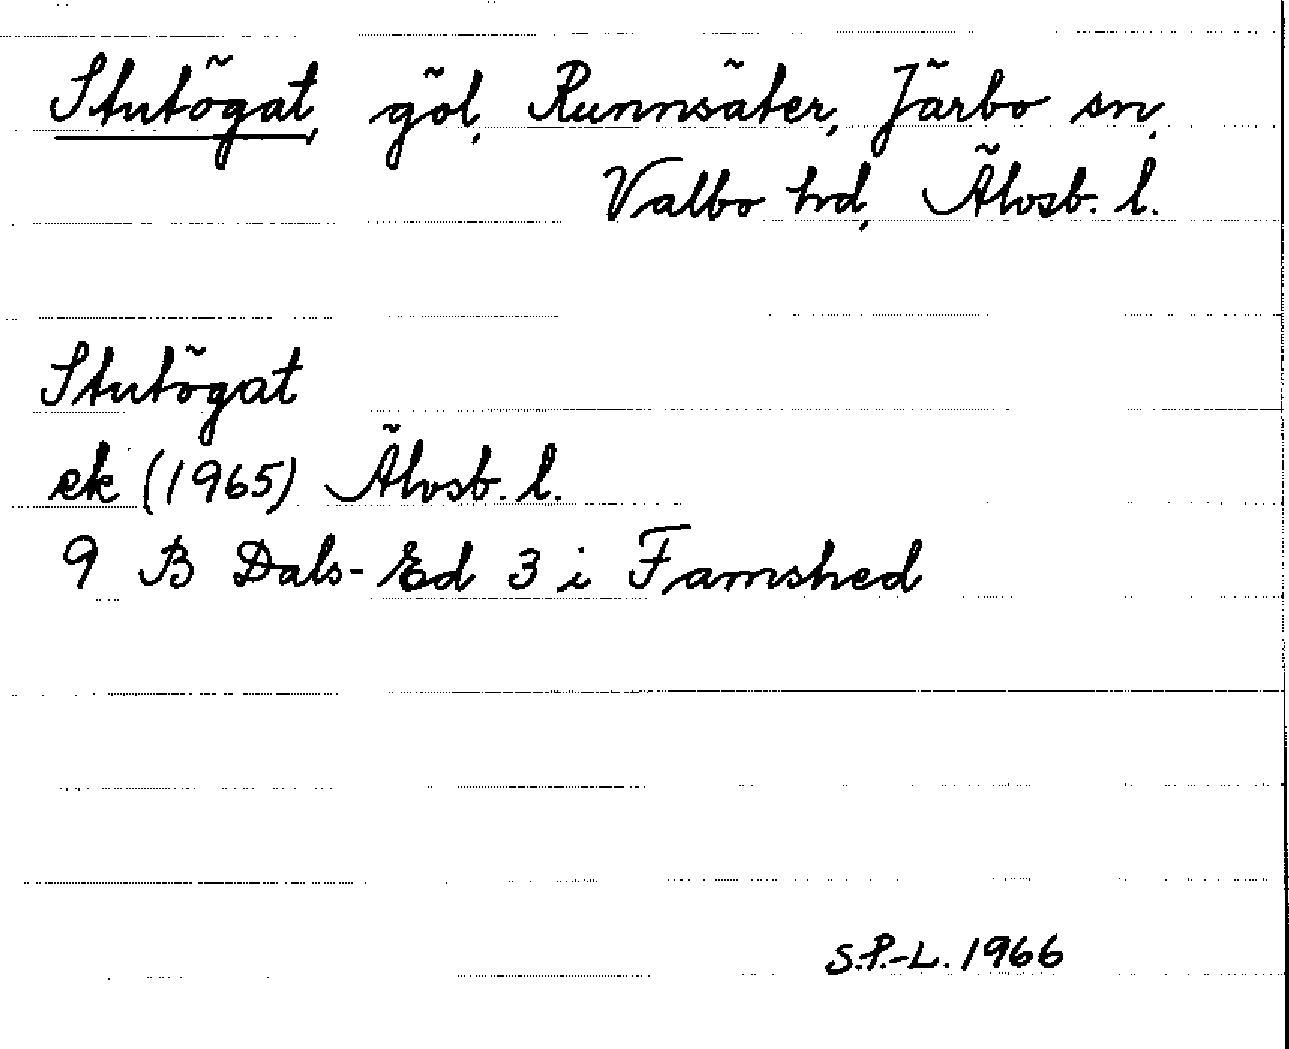 Stutögat, göl, Runnsäter, Järbo sn,
Valbo hd, Älvsb. l.
Stutögat
ek (1965) Älvsb. l.
9 B Dals-Ed 3 i Famshed
S.P.-L. 1966